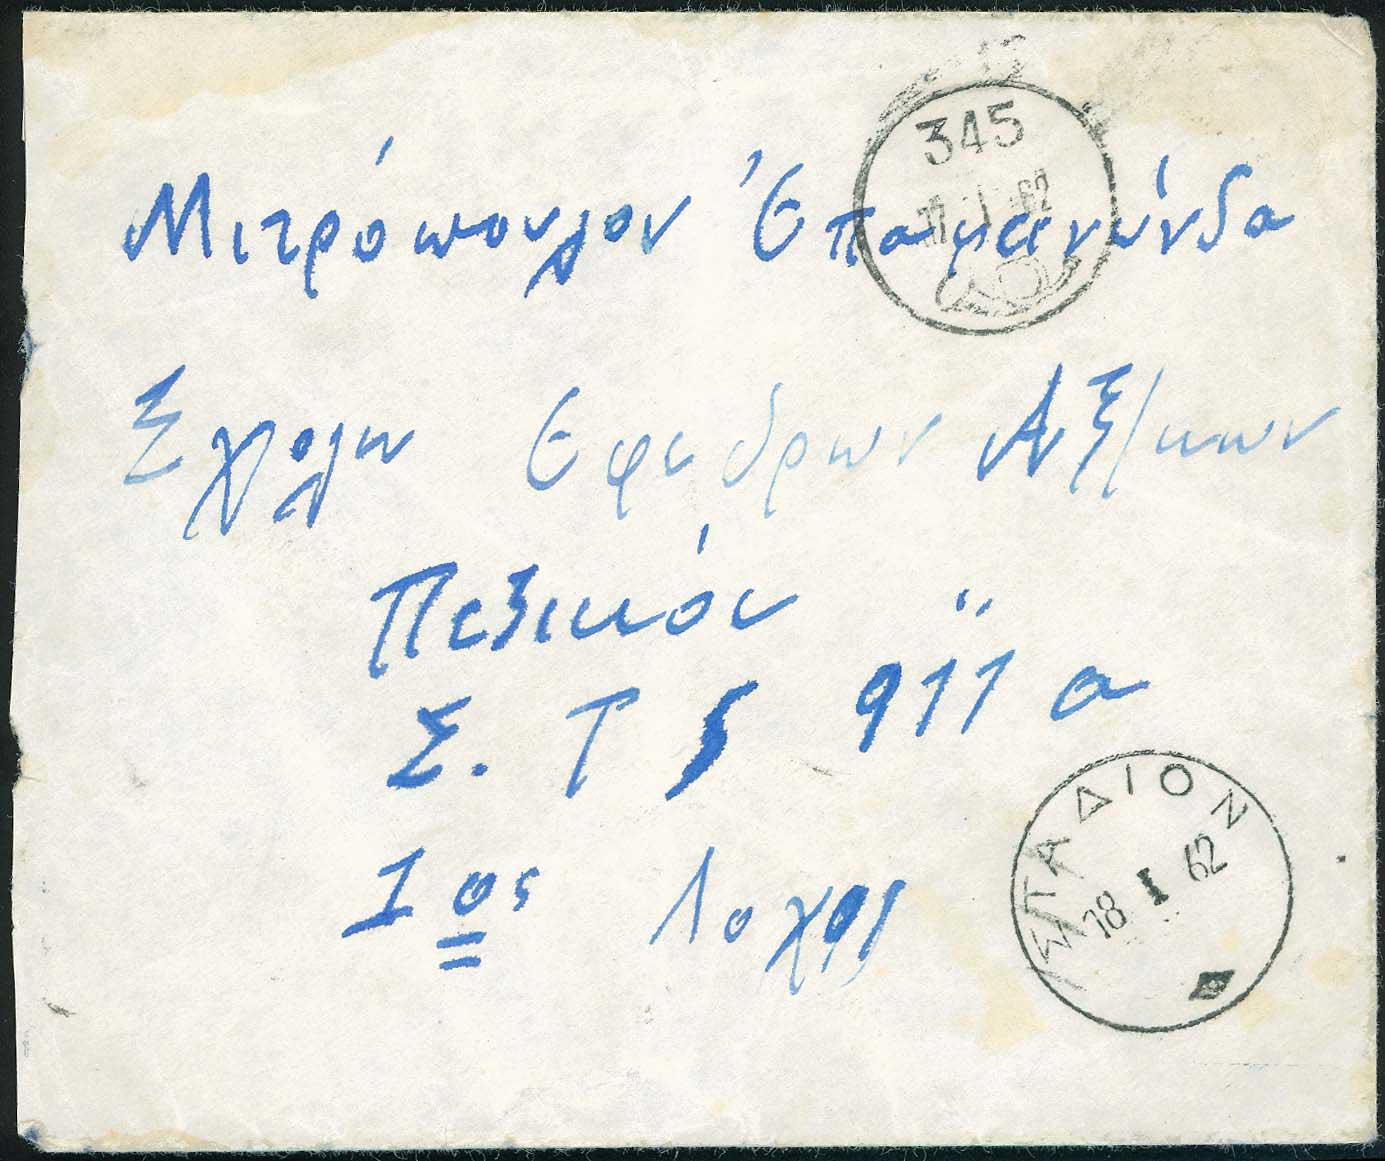 345
17 I 62
Μιτρόπουλον Ἐπαμεινώνδα
Σχολην Εφεδρων Αξ/κων
Πεζικόυ
Σ. Τ 911 α
1 ος Λοχος
ΣΠΑΔΙΟΝ
18 I 62